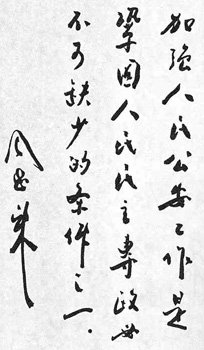 加强人民公安工作是
巩固人民民主专政必
不可缺少的条件之一.
周恩来